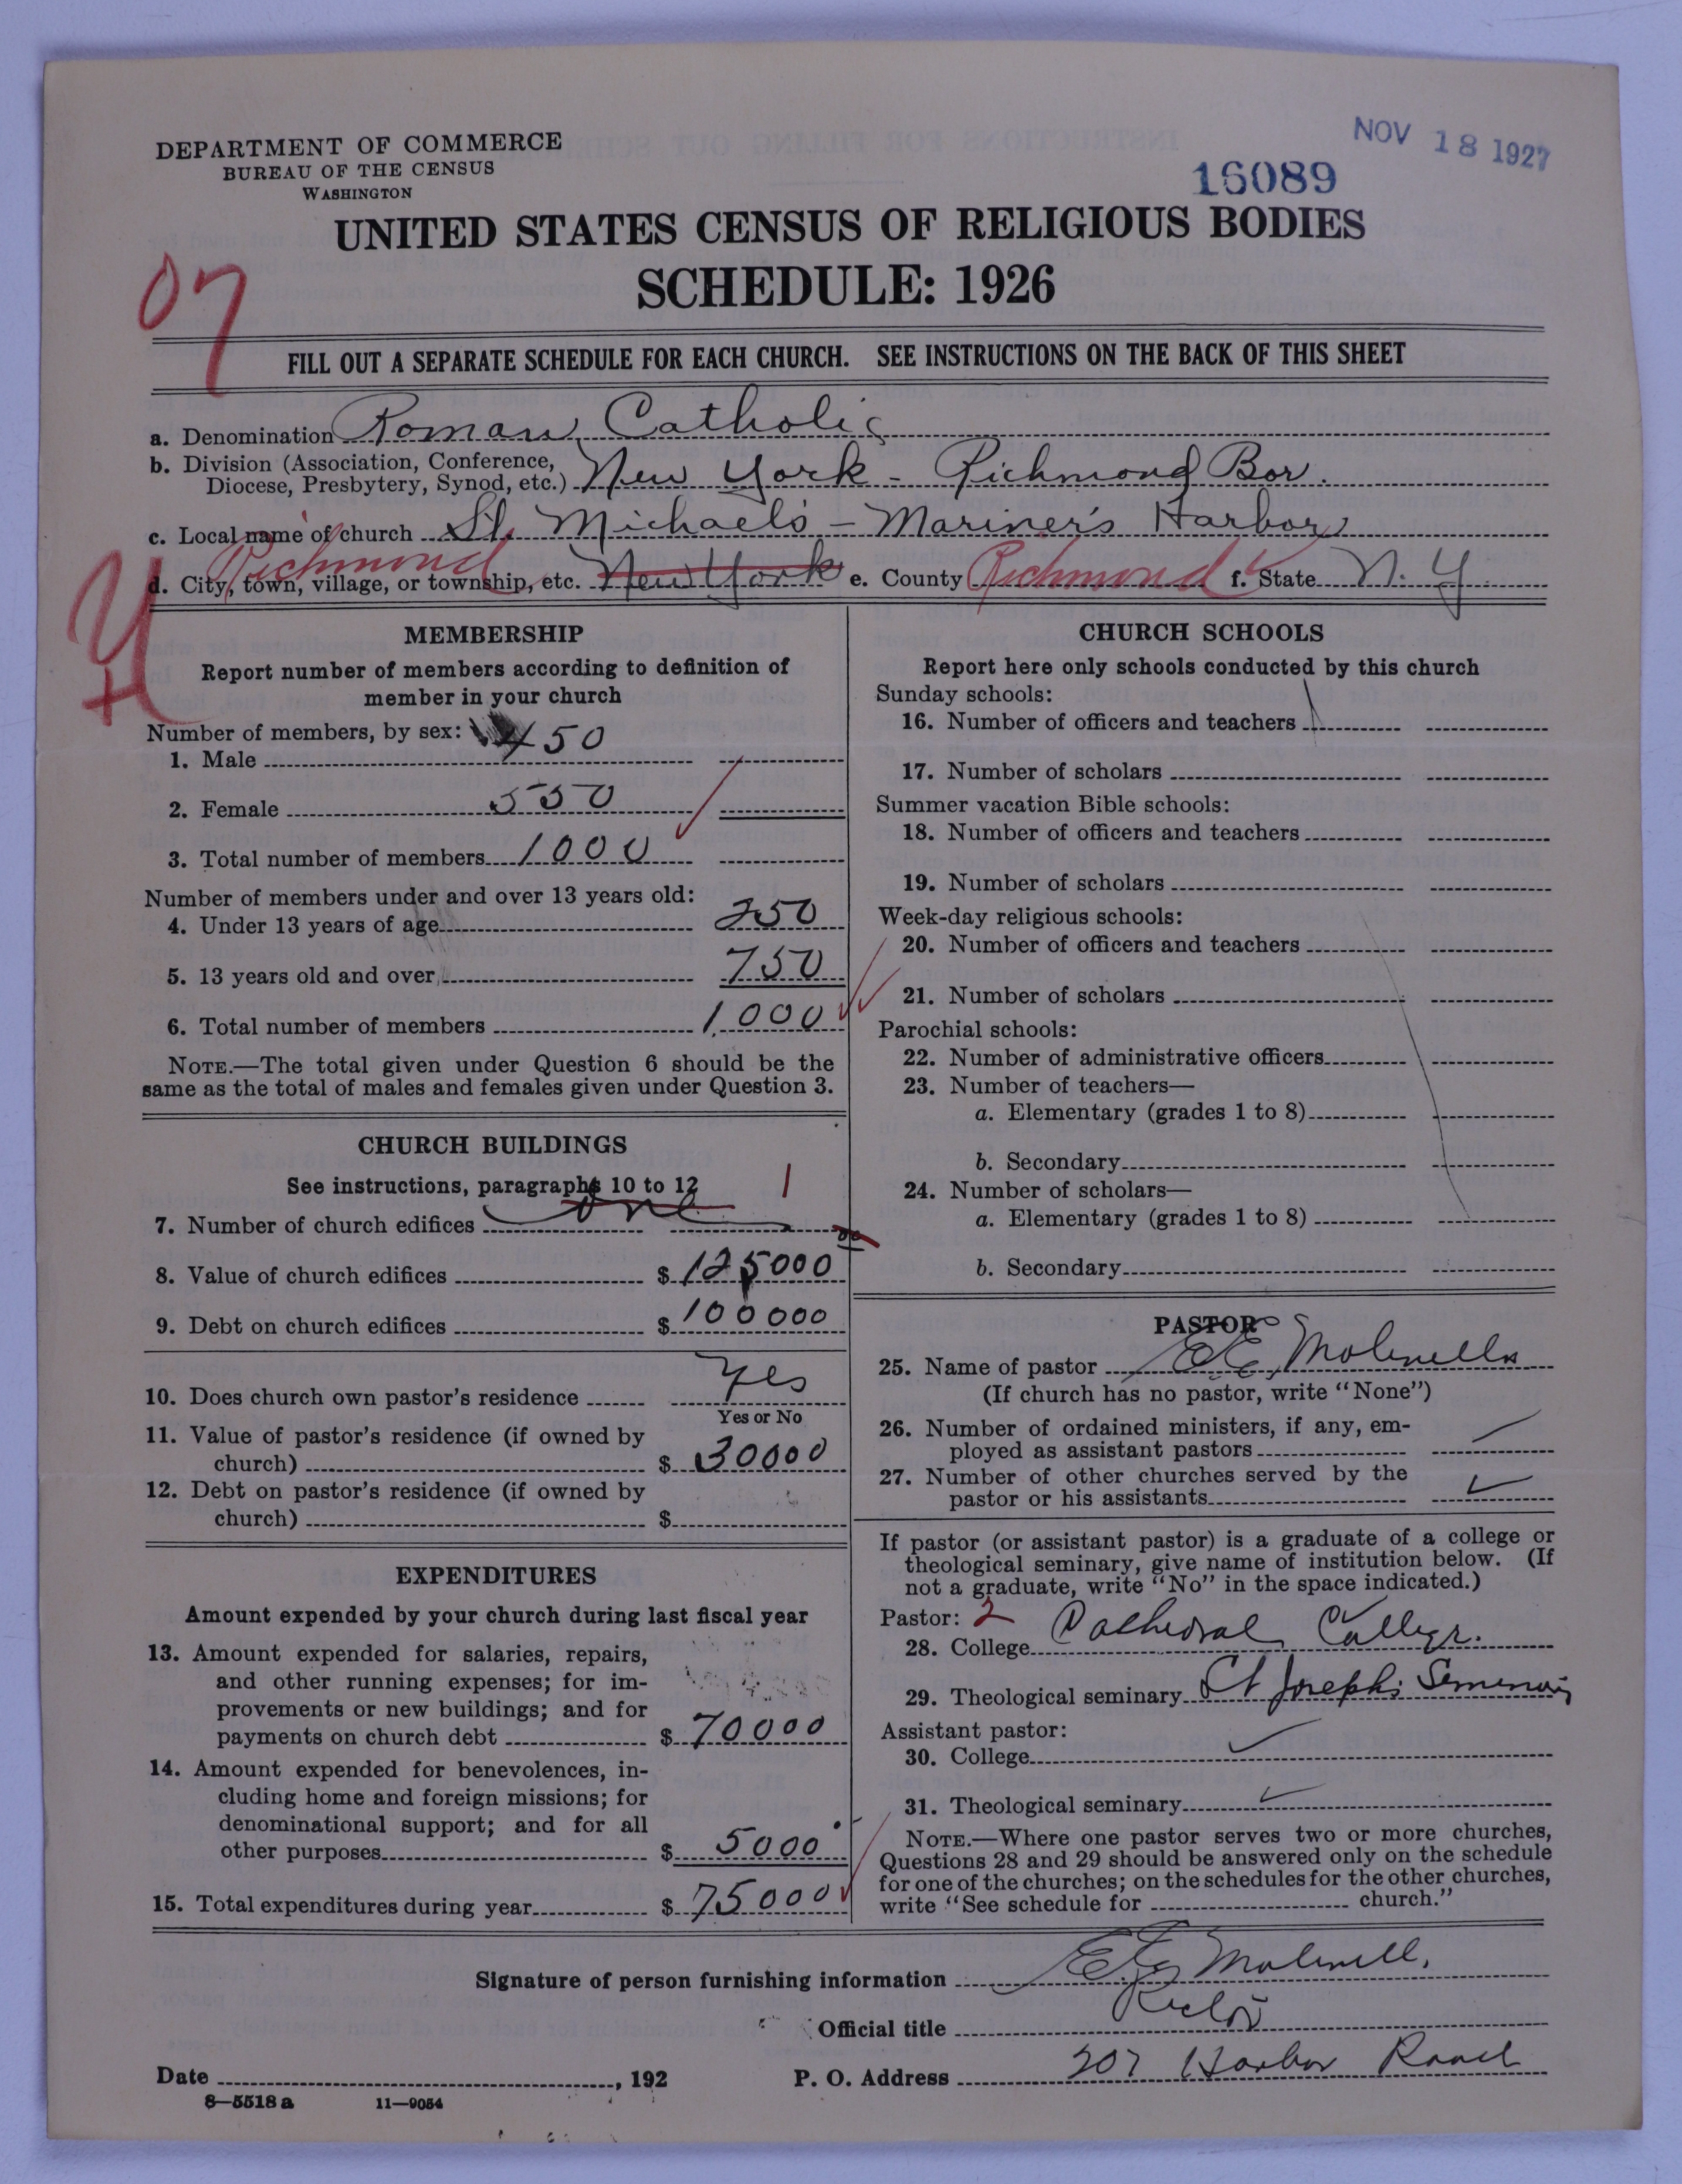 DEPARTMENT OF COMMERCE
BUREAU OF THE CENSUS
WASHINGTON
NOV 18 1927
16089
UNITED STATES CENSUS OF RELIGIOUS BODIES
SCHEDULE: 1926
07
FILL OUT A SEPARATE SCHEDULE FOR EACH CHURCH. SEE INSTRUCTIONS ON THE BACK OF THIS SHEET
a. Denomination Roman Catholic
b. Division (Association, Conference, Diocese, Presbytery, Synod, etc.) New York - Richmond Bor.
c. Local name of church St. Michael's - Mariner's Harbor
Richmond
d. City, town, village, or township, etc. New York e. County Richmond f. State N. Y.
MEMBERSHIP
Report number of members according to definition of
member in your church
Number of members, by sex:
1. Male 450
2. Female 550
3. Total number of members 1000
Number of members under and over 13 years old:
4. Under 13 years of age 250
5. 13 years old and over 750
6. Total number of members 1,000
NOTE.—The total given under Question 6 should be the
same as the total of males and females given under Question 3.
CHURCH BUILDINGS
See instructions, paragraphs 10 to 12 1
7. Number of church edifices one
8. Value of church edifices $ 125000
9. Debt on church edifices $ 100000
10. Does church own pastor's residence Yes
Yes or No
11. Value of pastor's residence (if owned by
church) $ 30000
12. Debt on pastor's residence (if owned by
church) $
EXPENDITURES
Amount expended by your church during last fiscal year
13. Amount expended for salaries, repairs,
and other running expenses; for im-
provements or new buildings; and for
payments on church debt $ 70000
14. Amount expended for benevolences, in-
cluding home and foreign missions; for
denominational support; and for all
other purposes $ 5000
15. Total expenditures during year $ 75000
CHURCH SCHOOLS
Report here only schools conducted by this church
Sunday schools:
16. Number of officers and teachers
17. Number of scholars
Summer vacation Bible schools:
18. Number of officers and teachers
19. Number of scholars
Week-day religious schools:
20. Number of officers and teachers
21. Number of scholars
Parochial schools:
22. Number of administrative officers
23. Number of teachers—
a. Elementary (grades 1 to 8)
b. Secondary
24. Number of scholars—
a. Elementary (grades 1 to 8)
b. Secondary
PASTOR
25. Name of pastor
(If church has no pastor, write "None")
26. Number of ordained ministers, if any, em-
ployed as assistant pastors
27. Number of other churches served by the
pastor or his assistants
If pastor (or assistant pastor) is a graduate of a college or
theological seminary, give name of institution below. (If
not a graduate, write "No" in the space indicated.)
Pastor: 2
28. College Cathedral College.
29. Theological seminary St Joseph's Seminary
Assistant pastor:
30. College
31. Theological seminary
NOTE.—Where one pastor serves two or more churches,
Questions 28 and 29 should be answered only on the schedule
for one of the churches; on the schedules for the other churches,
write "See schedule for church."
Signature of person furnishing information
Official title Rector
Date , 192 P. O. Address 207 Harbor Road
8—5518 a 11—9054